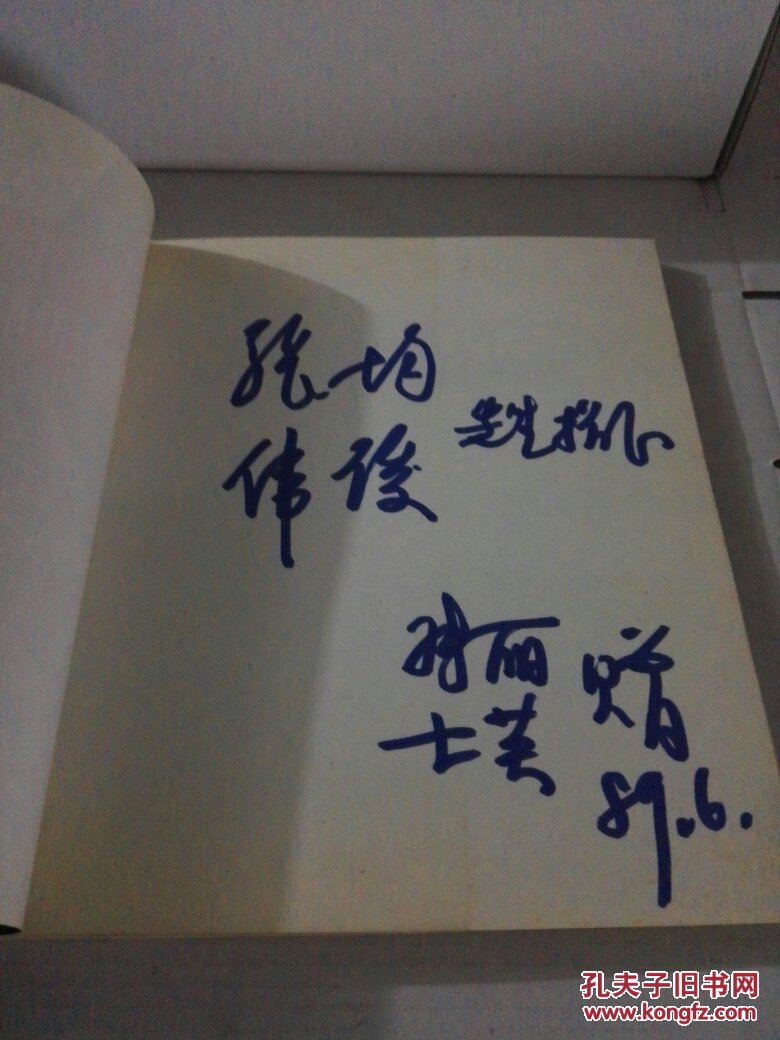 张均
伟俊
先生指正
丽
士英
赠
89.6.
孔夫子旧书网
www.kongfz.com